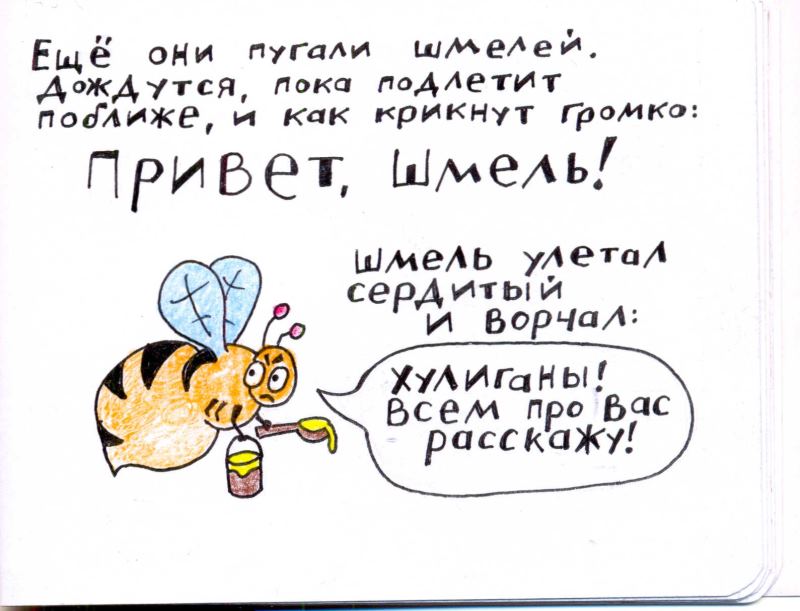 Ещё они пугали шмелей.
Дождутся, пока подлетит
поближе, и как крикнут громко:
Привет, Шмель!
Шмель улетал
сердитый
и ворчал:
Хулиганы!
Всем про вас
расскажу!